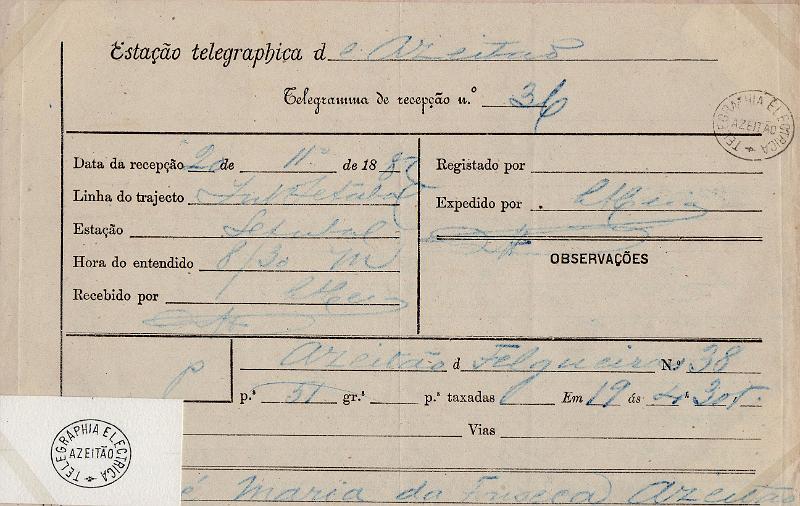 Estação telegraphica de Azeitão
Telegramma de recepção n.º 36
TELEGRAPHIA ELECTRICA
AZEITÃO
Data da recepção 20 de 11º de 188
Linha do trajecto Setubal
Estação Setubal
Hora do entendido 8/30 M
Recebido por
Registado por
Expedido por
OBSERVAÇÕES
p
Azeitão d Felgueiras N.º 38
p.ª 51 gr.ª p.ª taxadas Em 19 ás 4 30 t.
Vias
é Maria da Fonseca Azeitão
TELEGRAPHIA ELECTRICA
AZEITÃO